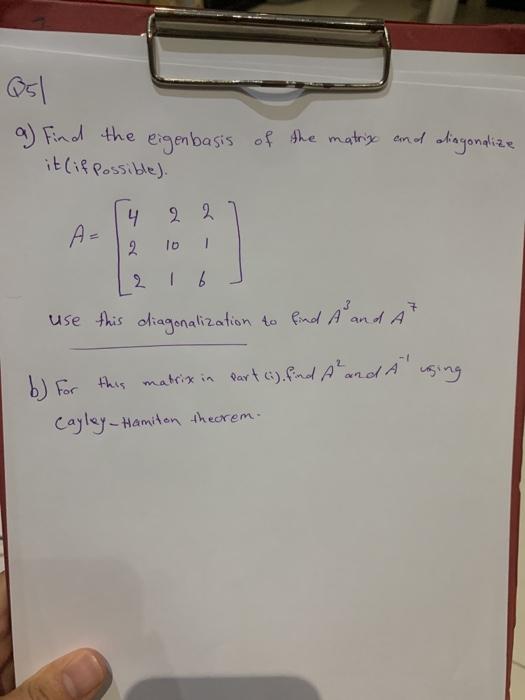 Q5|
a) Find the eigenbasis of the matrix and diagonalize
it (if possible).
A = [4 2 2
2 10 1
2 1 6]
use this diagonalization to find A³ and A⁷
b) For this matrix in part (i). find A² and A⁻¹ using
Cayley-Hamiton theorem.